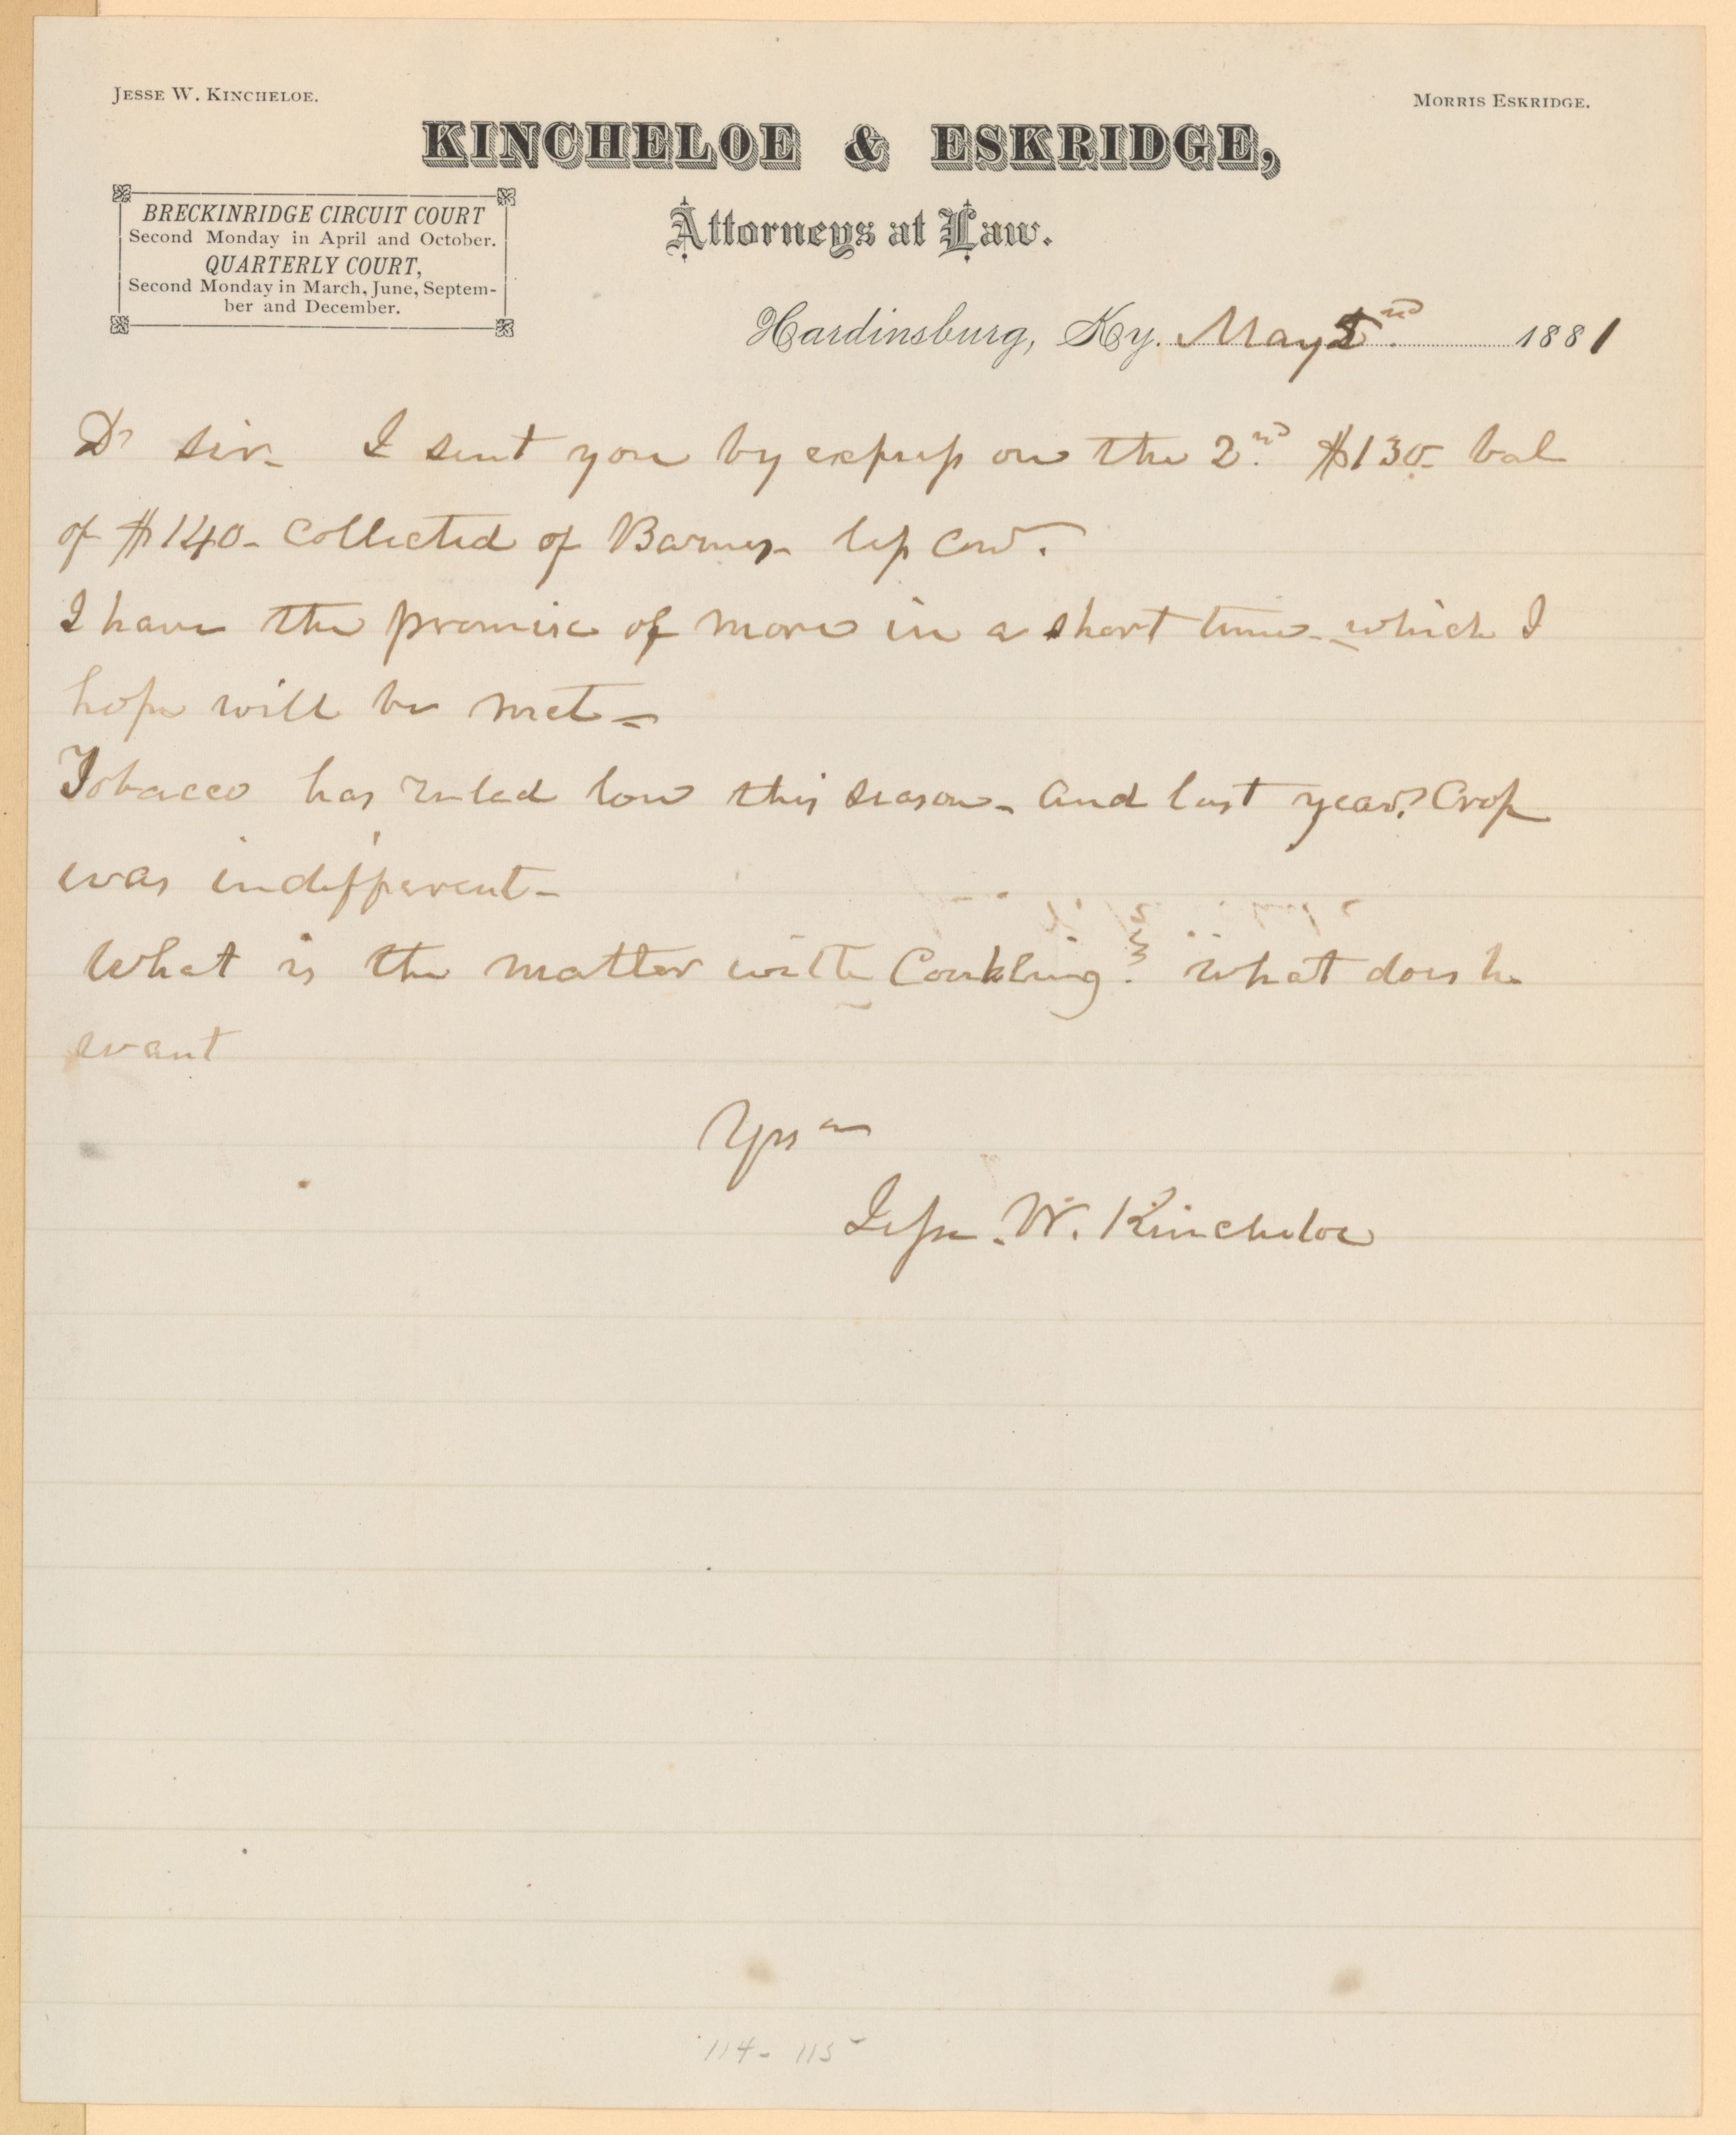 JESSE W. KINCHELOE.
MORRIS ESKRIDGE.
KINCHELOE & ESKRIDGE,
Attorneys at Law.
BRECKINRIDGE CIRCUIT COURT
Second Monday in April and October.
QUARTERLY COURT,
Second Monday in March, June, Septem-
ber and December.
Hardinsburg, Ky. May nd 1881
Dr sir- I sent you by express on the 2nd. $130- bal
of $140- Collected of Barnes- less com.
I have the promise of more in a short time- which I
hope will be met-
Tobacco has ruled low this season- and last years Crop
was indifferent-
What is the matter with Conkling? What does he
want
Yrs
Jesse. W. Kincheloe
114- 115